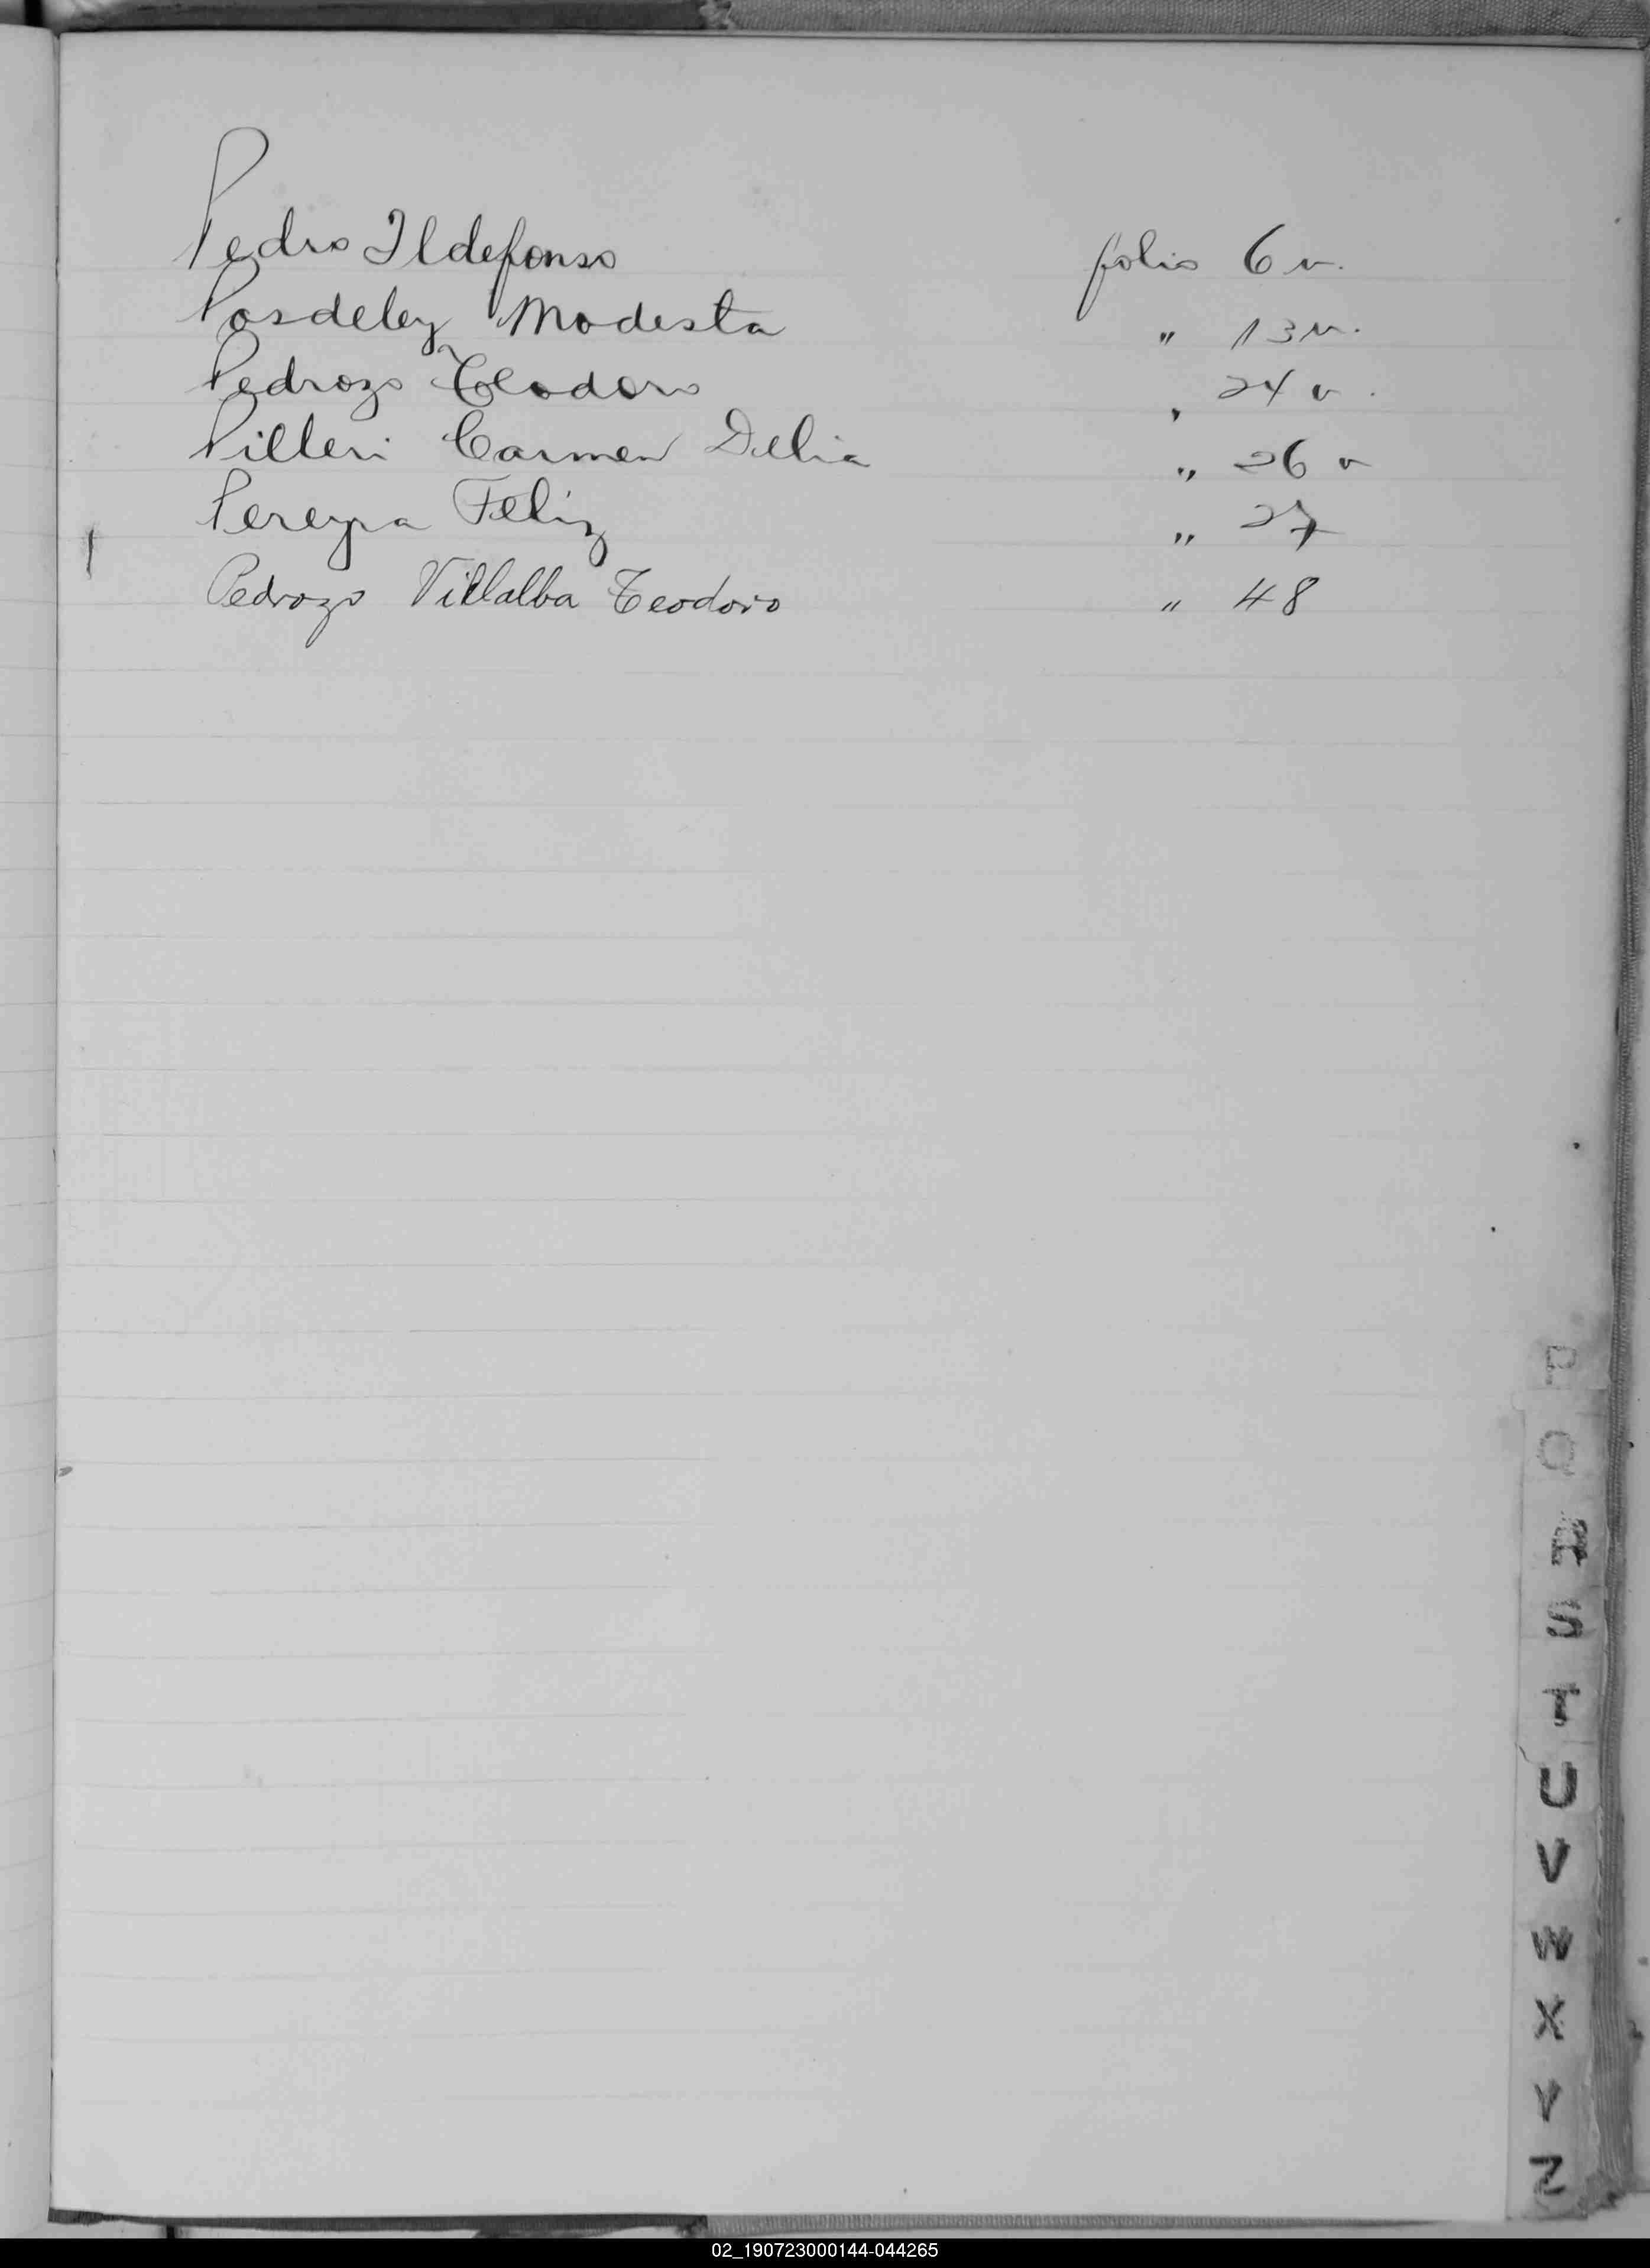 Pedro Ildefonso folio 6 v.
Posdeley Modesta " 13 v.
Pedrozo Teodoro " 24 v.
Pilleri Carmen Delia " 26 v
Pereyra Feliz " 27
Pedrozo Villalba Teodoro " 48
P
Q
R
S
T
U
V
W
X
Y
Z
02_190723000144-044265